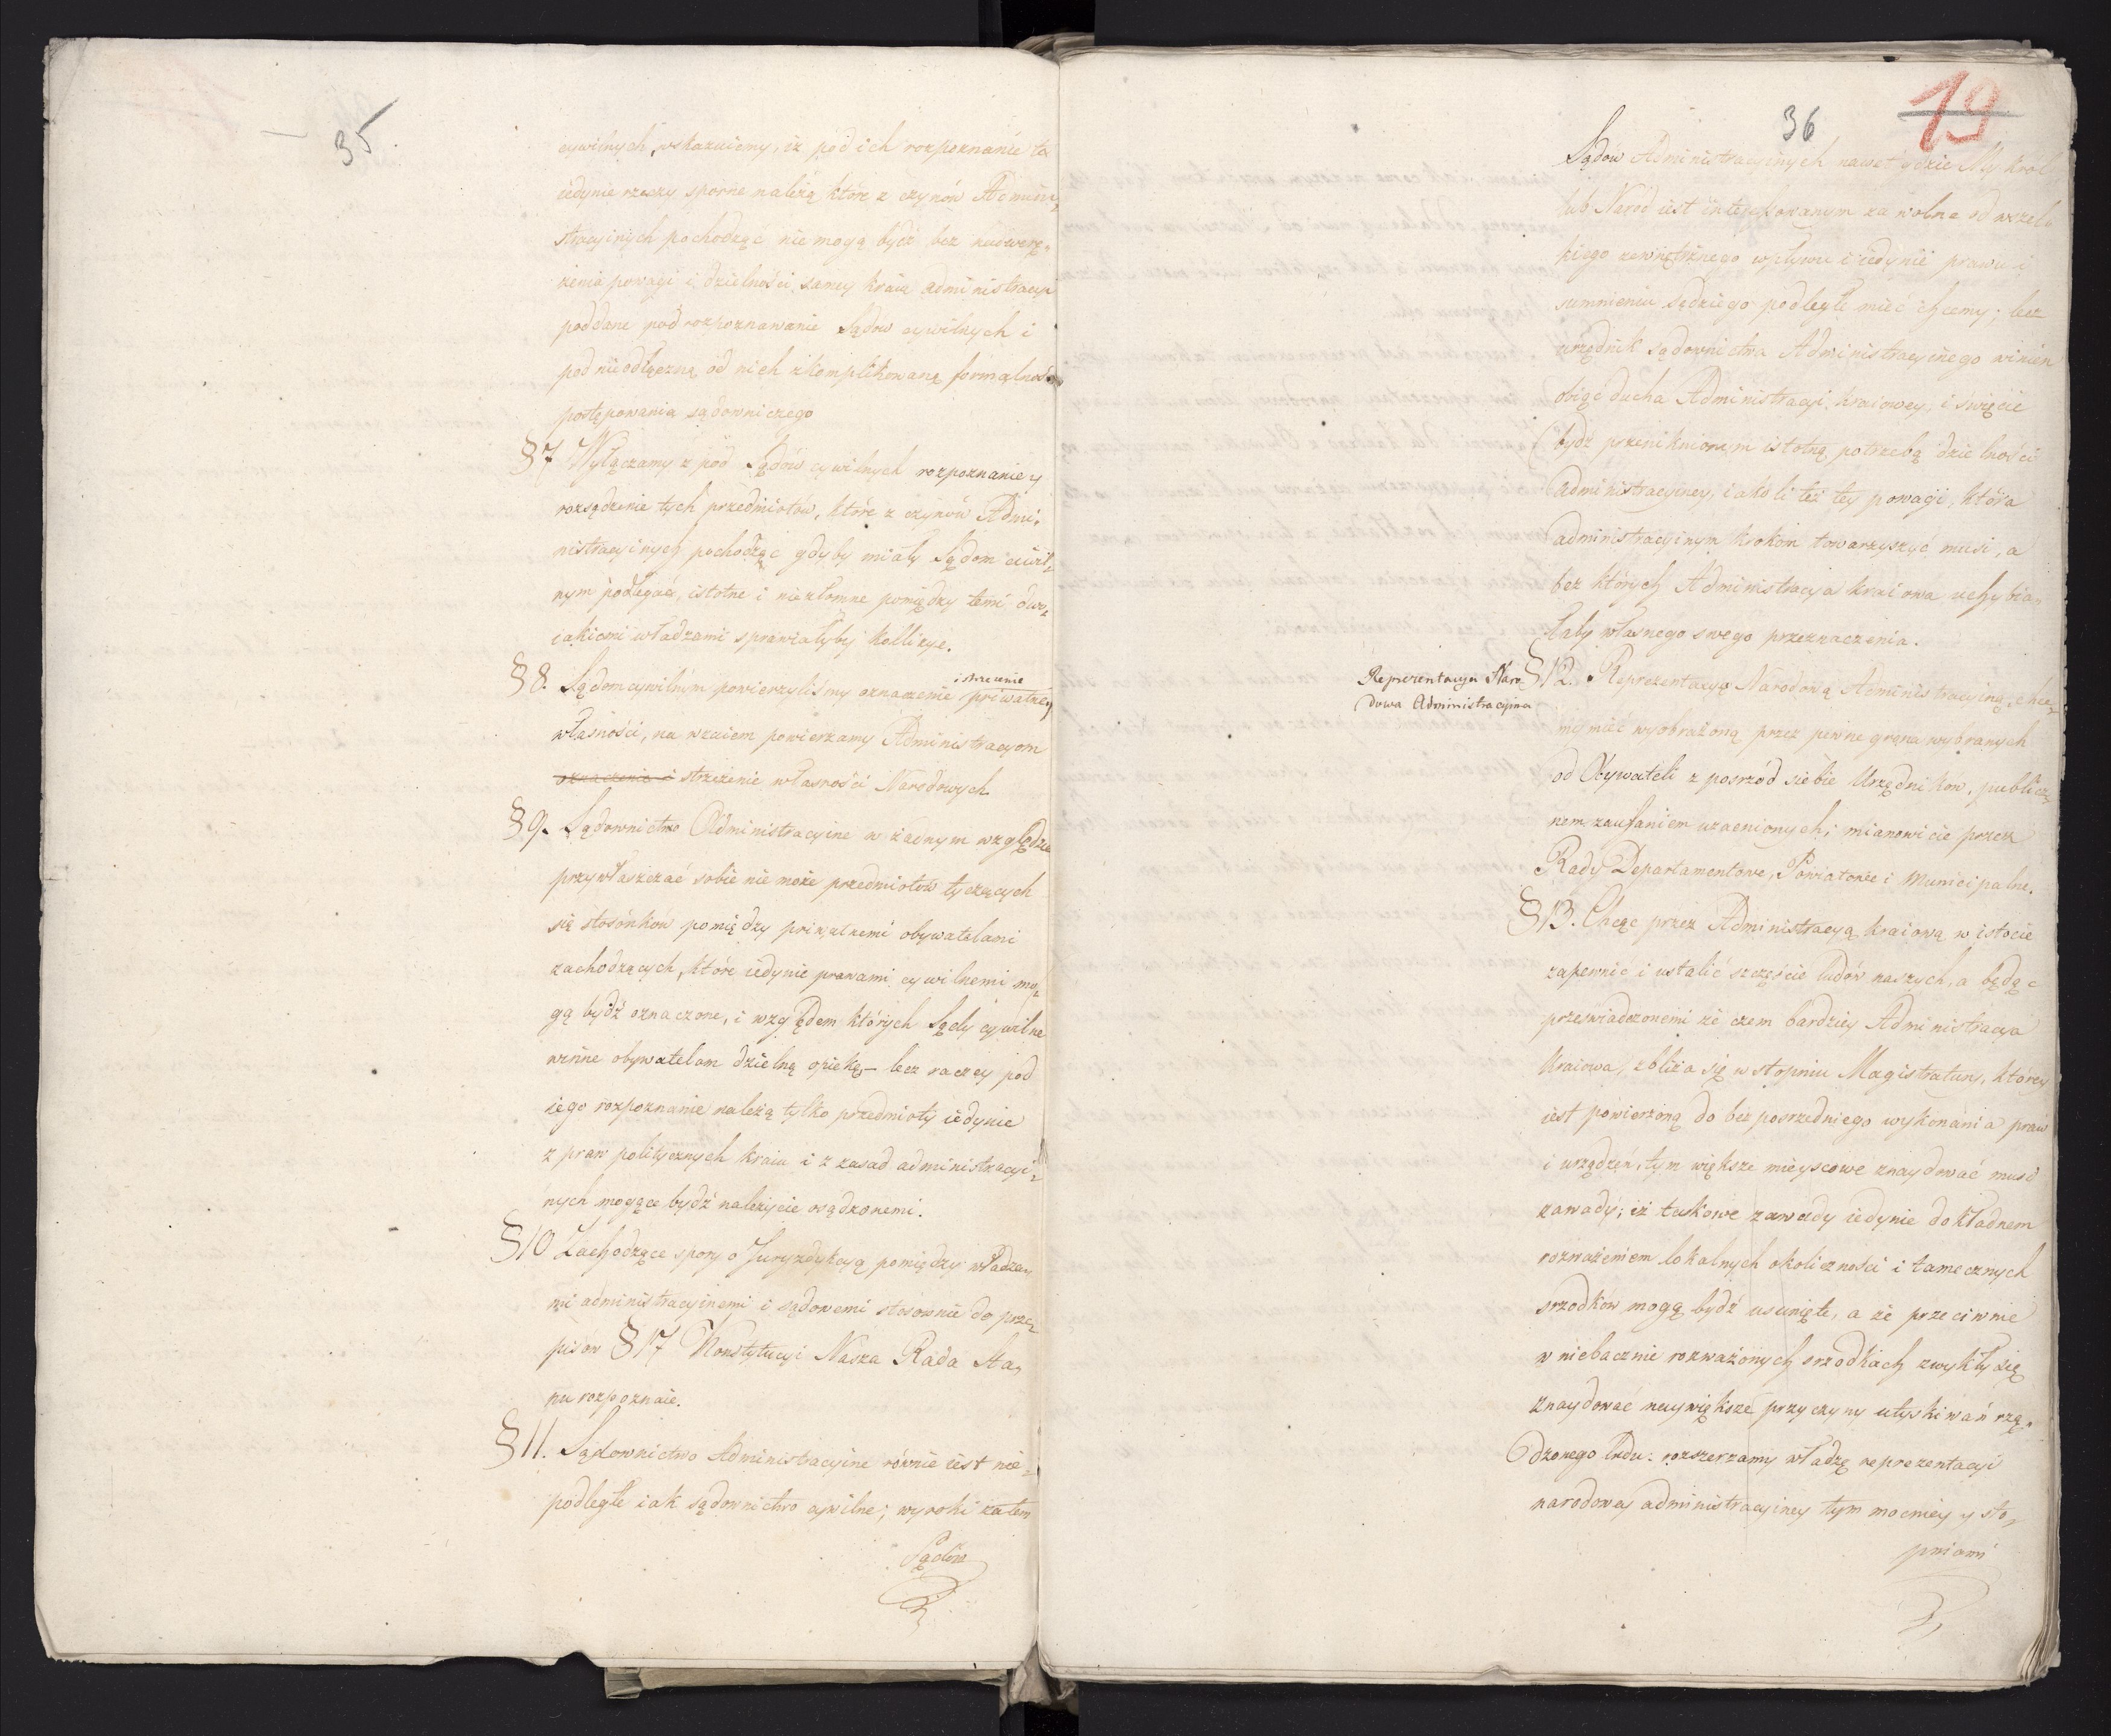 35.
cywilnych, wskazuiemy, iż pod ich rozpoznanie te
iedynie rzeczy sporne należą które z czynów Admini„
stracyinych pochodząc nie mogą bydź bez nadweręż„
żenia powagi i dzielności samey kraiu administracyi
poddane pod rozpoznawanie Sądów cywilnych i
pod nieodłączną od nich zkomplikowaną formalność
postępowania sądowniczego
§ 7 Wyłączamy z pod Sądów cywilnych rozpoznanie y
rozsądzenie tych przedmiotów, które z czynów Admi„
nistracyinych pochodząc gdyby miały Sądom cywil„
nym podlegać, istotne i niezłomne pomiędzy temi dwo„
iakiemi władzami sprawiałyby kollizye.
§ 8. Sądom cywilnym powierzyliśmy oznaczenie i strzeżenie prywatney
własności, na wzaiem powierzamy Administracyom
oznaczenie i strzeżenie własności Narodowych
§ 9. Sądownictwo Administracyine w żadnym względzie
przywłaszczać sobie nie może przedmiotów tyczących
się stosunków pomiędzy prywatnemi obywatelami
zachodzących, które iedynie prawami cywilnemi mo„
gą bydź oznaczone, i względem których Sądy cywilne
winne obywatelom dzielną opiekę – lecz raczey pod
iego rozpoznanie należą tylko przedmioty iedynie
z praw politycznych kraiu i z zasad administracyi„
nych mogące bydź należycie osądzonemi.
§ 10 Zachodzące spory o Juryzdykcyą pomiędzy władza„
mi administracyinemi i sądowemi stosownie do prze„
pisów § 17 Konstytucyi Nasza Rada Sta„
nu rozpoznaie.
§ 11. Sądownictwo Administracyine równie iest nie„
podległe iak sądownictwo cywilne; wyroki zatem
Sądów
36
19
Sądów Administracyinych nawet gdzie My Król
lub Naród iest interessowanym za wolne od wszel„
kiego zewnętrznego wpływu i iedynie prawu i
sumnieniu Sędziego podległe mieć chcemy; lecz
urzędnik sądownictwa Administracyinego winien
obiąć ducha Administracyi kraiowey, i święcie
bydź przeniknionym istotną potrzebą dzielności
administracyiney, iako li też tey powagi, która
administracyinym krokom towarzyszyć musi, a
bez których Administracya kraiowa uchybia„
łaby własnego swego przeznaczenia.
Reprezentacya Naro
dowa Administracyina
§ 12. Reprezentacyą Narodową Administracyiną, chce„
my mieć wyobrażoną przez pewne grona wybranych
od Obywateli z posrzód siebie Urzędników, publicz„
nem zaufaniem uzacnionych; mianowicie przez
Rady Departamentowe, Powiatowe i Municipalne.
§ 13. Chcąc przez Administracyą kraiową w istocie
zapewnić i ustalić szczęście ludów naszych, a będąc
przeświadczonemi że czem bardziey Administracya
Kraiowa, zbliża się w stopniu Magistratury, którey
iest powierzoną do bezposrzedniego wykonania praw
i urządzeń, tym większe mieyscowe znaydować musi
zawady; iż takowe zawady iedynie dokładnem
rozważeniem lokalnych okoliczności i tamecznych
srzodków mogą bydź usunięte, a że przeciwnie
w niebacznie rozważonych srzodkach zwykły się
znaydować naywiększe przyczyny utyskiwań rzą„
dzonego ludu: rozszerzamy władzę reprezentacyi
narodowey administracyiney tym mocniey y sto„
pniami